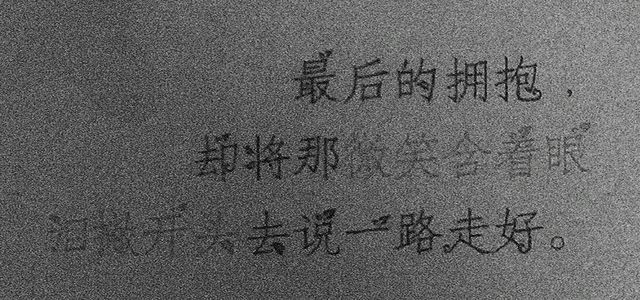 最后的拥抱，
却将那微笑含着眼
泪撇开头去说一路走好。